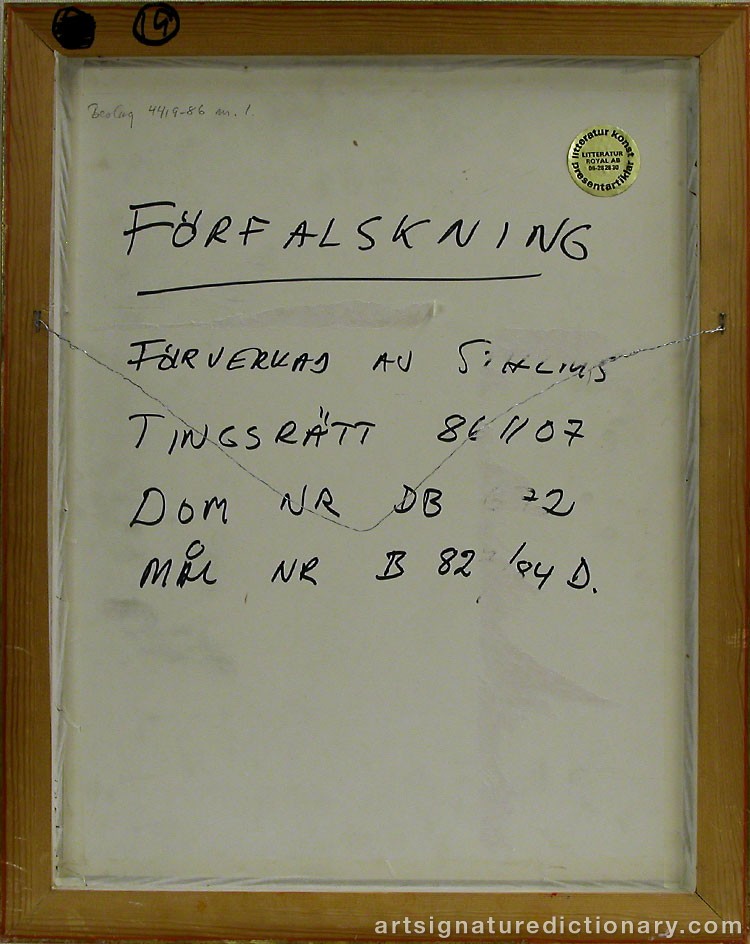 19
Beslag 4419-86 nr. 1.
litteratur konst
LITTERATUR
ROYAL AB
presentartiklar
FÖRFALSKNING
FÖRVERKAD AV
TINGSRÄTT 861107
DOM NR DB
MÅL NR B 82 /84 D.
artsignaturedictionary.com